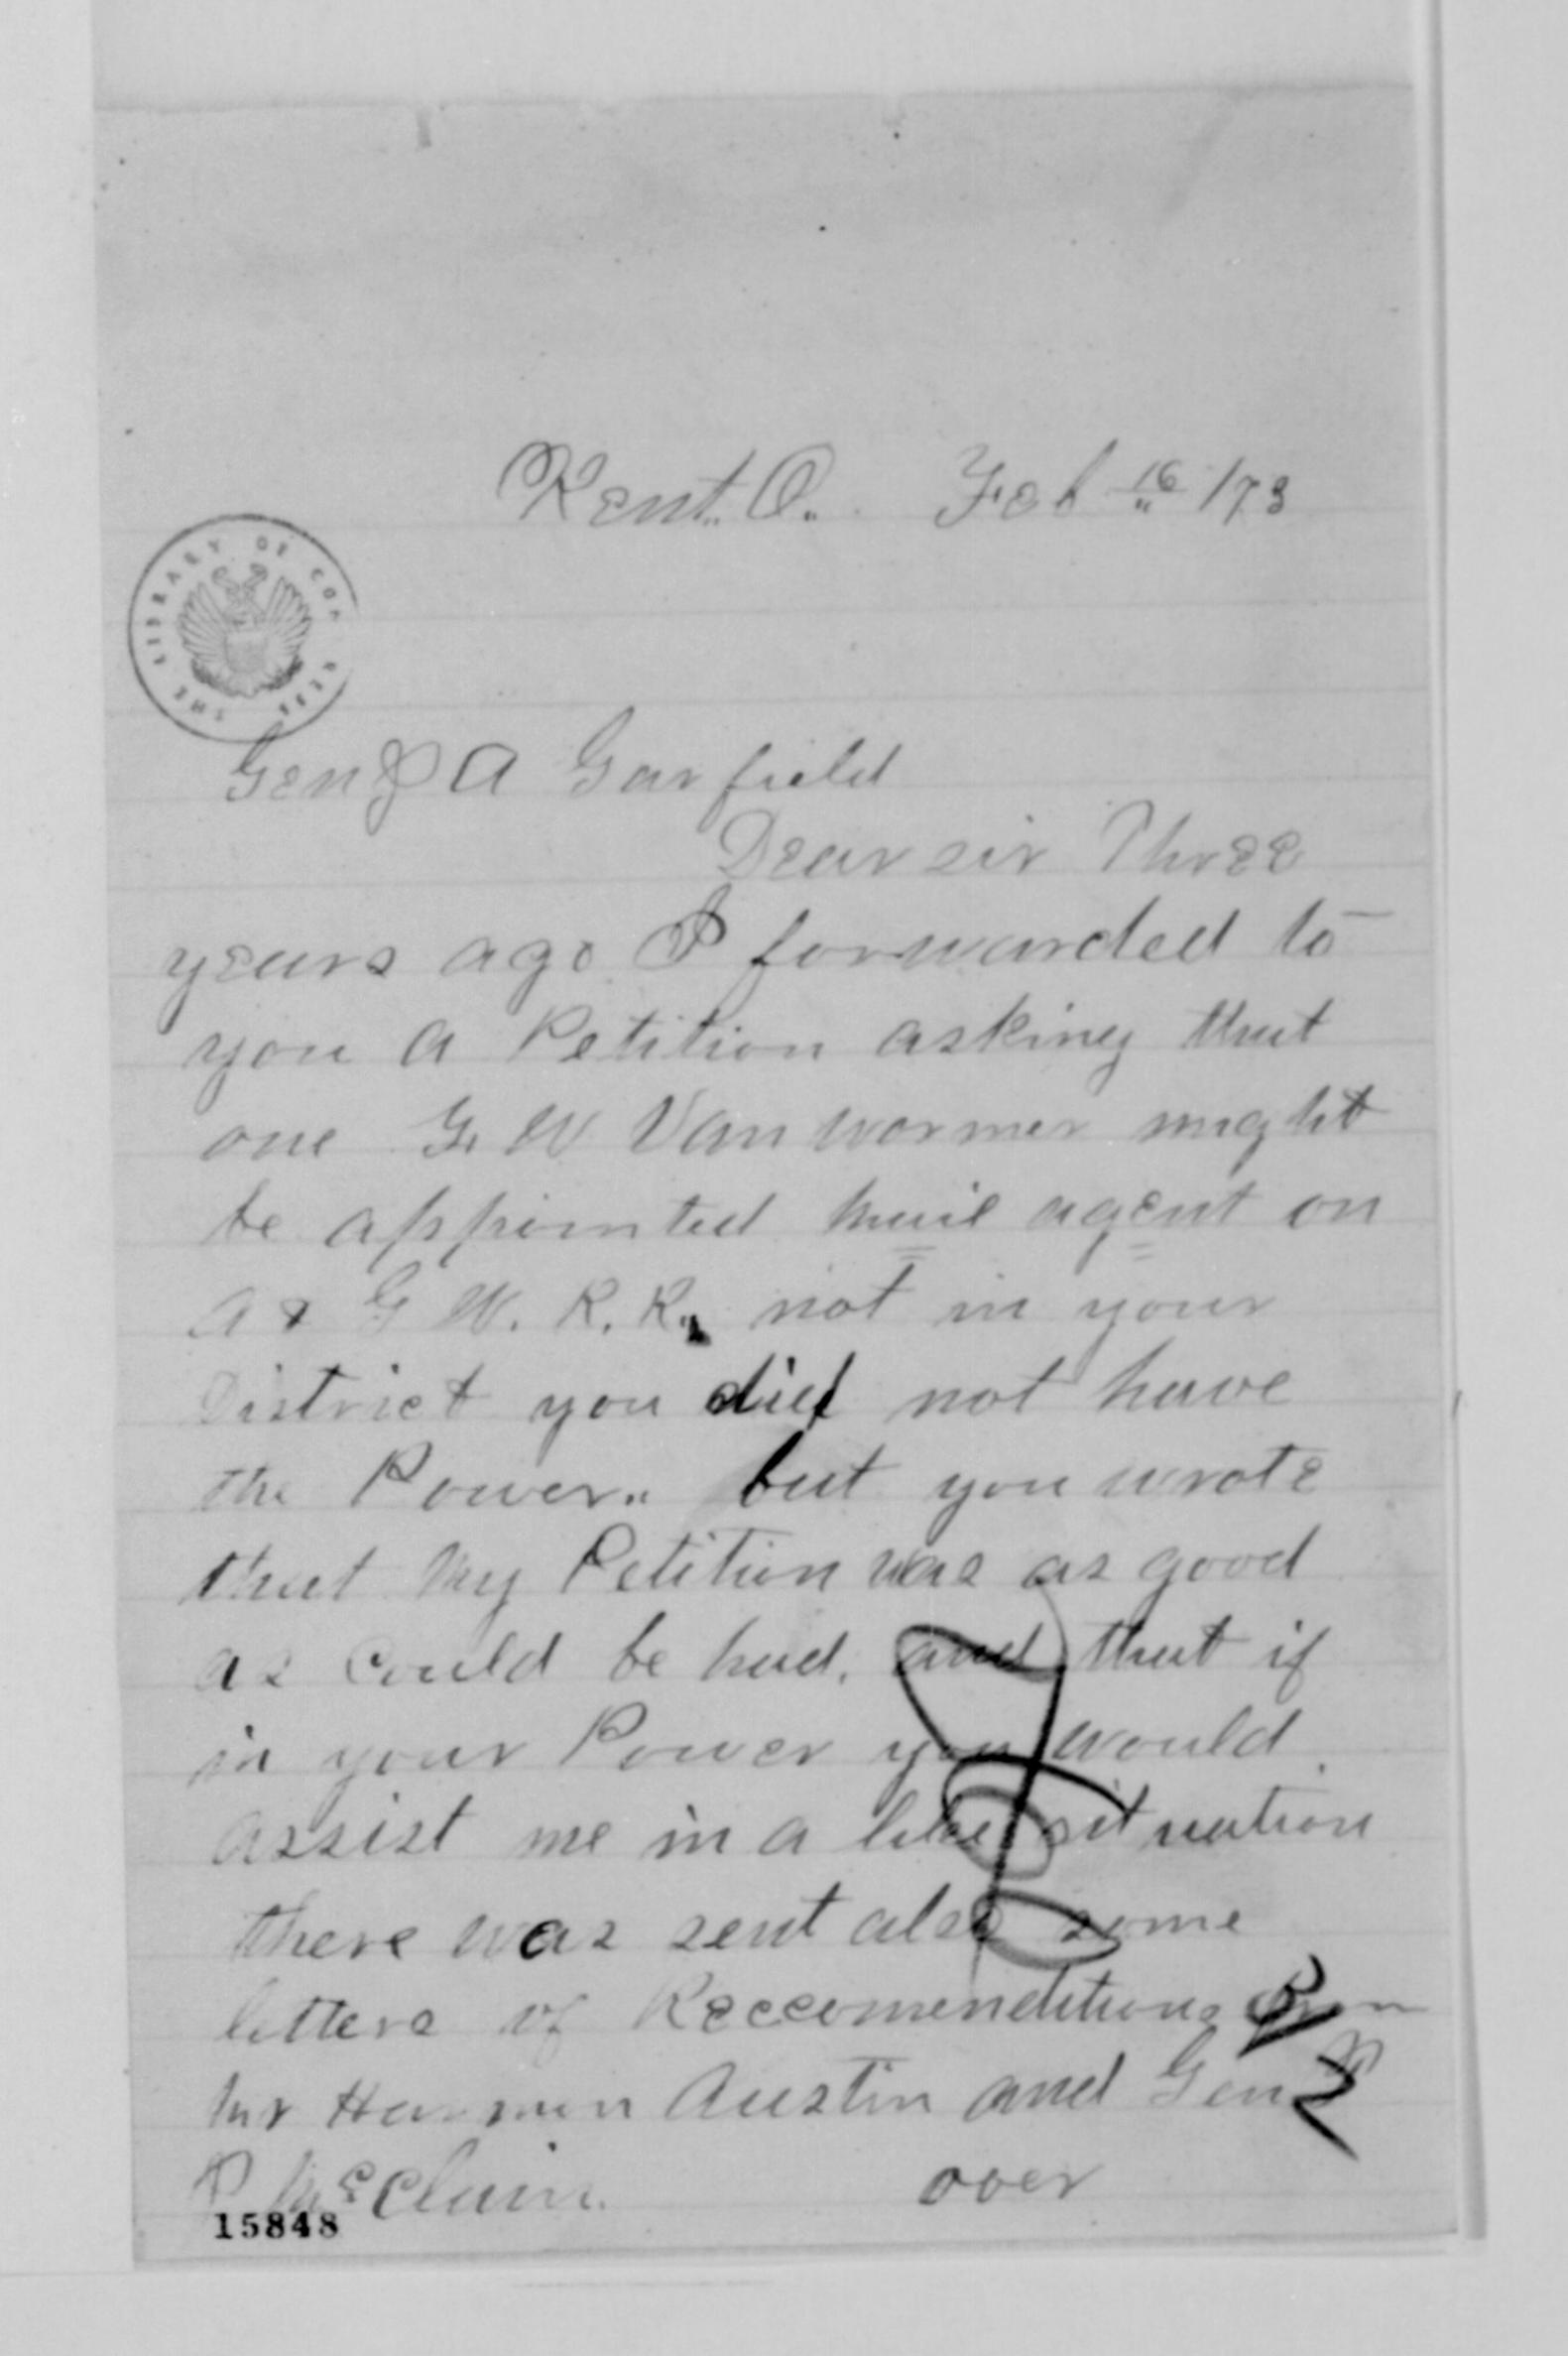 Kent. O. Feb 16 /73
THE LIBRARY OF CONGRESS
Gen J A Garfield
Dear sir Three
years ago I forwarded to
you a Petition asking that
one G. W Van wormer might
be appointed mail agent on
A & G W. R. R. not in your
District you did not have
the Power.. but you wrote
that my Petition was as good
as could be had. and that if
in your Power you would
assist me in a like situation
there was sent also some
letters of Reccomenditions from
Mr Harmon Austin and Gen
P McClain.
over
15848